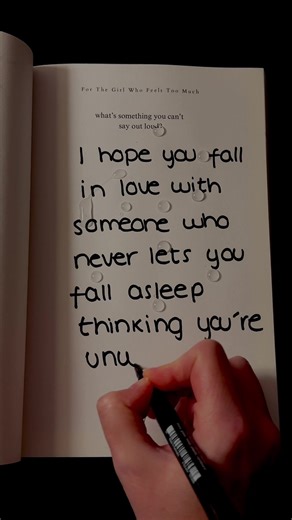 For The Girl Who Feels Too Much
what's something you can't
say out loud?
I hope you fall
in love with
someone who
never lets you
fall asleep
thinking you're
unu